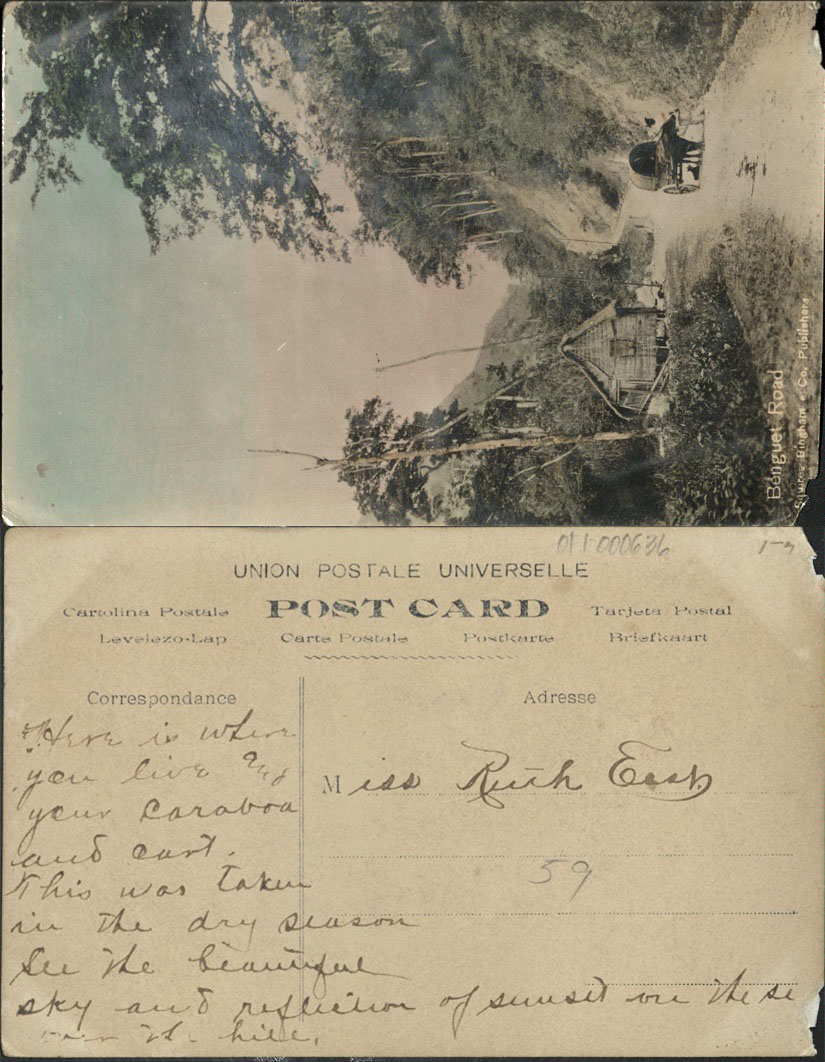 Benguet Road
Squires Bingham & Co, Publishers
011-000636
1-3
UNION POSTALE UNIVERSELLE
Cartolina Postale POST CARD Tarjeta Postal
Levelezo-Lap Carte Postale Postkarte Briefkaart
Correspondance
Here is where
you live and
your caraboa
and cart.
This was taken
in the dry season
See the beautiful
sky and reflection of sunset on these
over the hill.
Adresse
Miss Ruth East
59